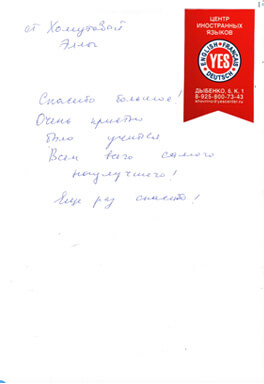 от Хомутовой
Аллы
ЦЕНТР
ИНОСТРАННЫХ
ЯЗЫКОВ
ENGLISH FRANÇAIS
YES
DEUTSCH
ДЫБЕНКО, 6, К. 1
8-925-800-73-43
Спасибо большое!
Очень приятно
было учиться
Всем всего самого
наилучшего!
Еще раз спасибо!